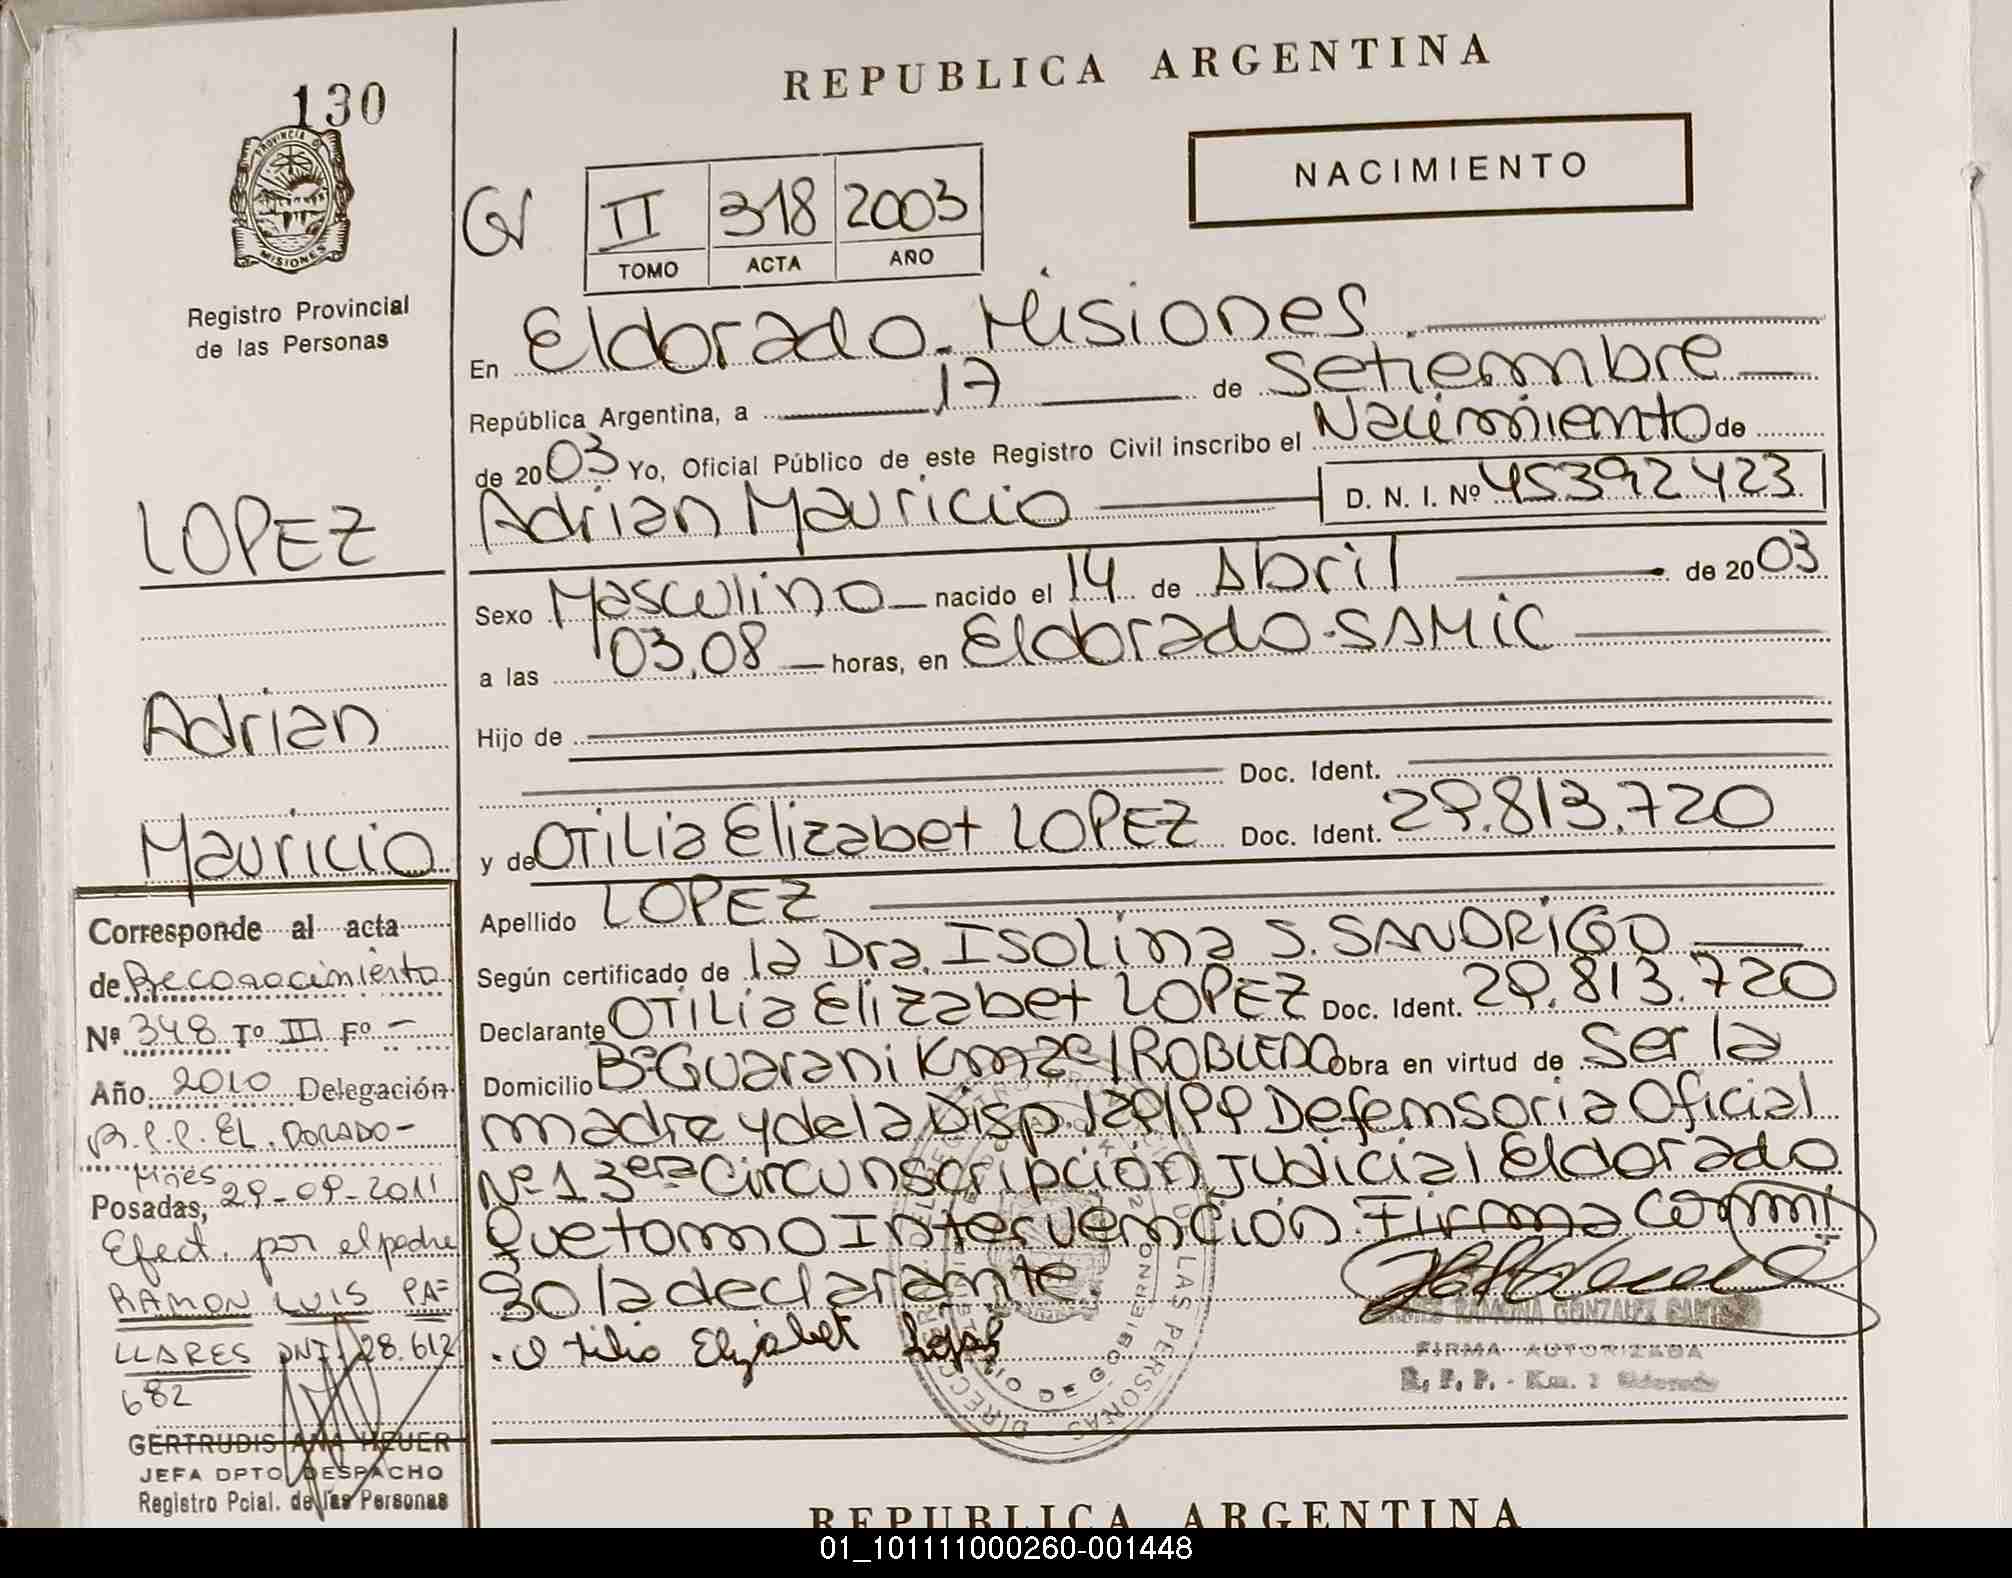 130
REPUBLICA ARGENTINA
NACIMIENTO
PROVINCIA DE
MISIONES
Registro Provincial
de las Personas
II 318 2003
TOMO ACTA AÑO
En Eldorado. Misiones.
República Argentina, a 17 de Setiembre
de 2003 Yo, Oficial Público de este Registro Civil inscribo el Nacimiento de
Adrian Mauricio D. N. I. Nº 45392423
Sexo Masculino nacido el 14 de Abril de 2003
a las 03,08 horas, en Eldorado.SAMIC
Hijo de
Doc. Ident.
y de OTILIA Elizabet LOPEZ Doc. Ident. 29.813.720
Apellido LOPEZ
Según certificado de la Dra. ISOLINA S. SANDRIGO
Declarante OTILIA Elizabet LOPEZ Doc. Ident. 29.813.720
Domicilio Bº Guarani Km 2 ROBLEDO Obra en virtud de Ser la
madre y de la Disp. 129/99 Defensoria Oficial
Nº 1 3era Circunscripción Judicial Eldorado
Que tomo Intervención. Firma conmi
go la declarante.
Otilia Elizabet Lopez
GONZALEZ
FIRMA AUTORIZADA
R. P. P. - Km. 2 Eldorado
LAS PERSONAS
DE GOBIERNO
LOPEZ
Adrian
Mauricio
Corresponde al acta
de Reconocimiento
Nº 348 Tº III Fº -
Año 2010 Delegación
R.P.P. EL. DORADO-
Mnes
Posadas, 29-09-2011
Efect. por el padre
RAMON LUIS PA=
LLARES DNI 28.612
682
GERTRUDIS ANA HEUER
JEFA DPTO DESPACHO
Registro Pcial. de las Personas
REPUBLICA ARGENTINA
01_101111000260-001448